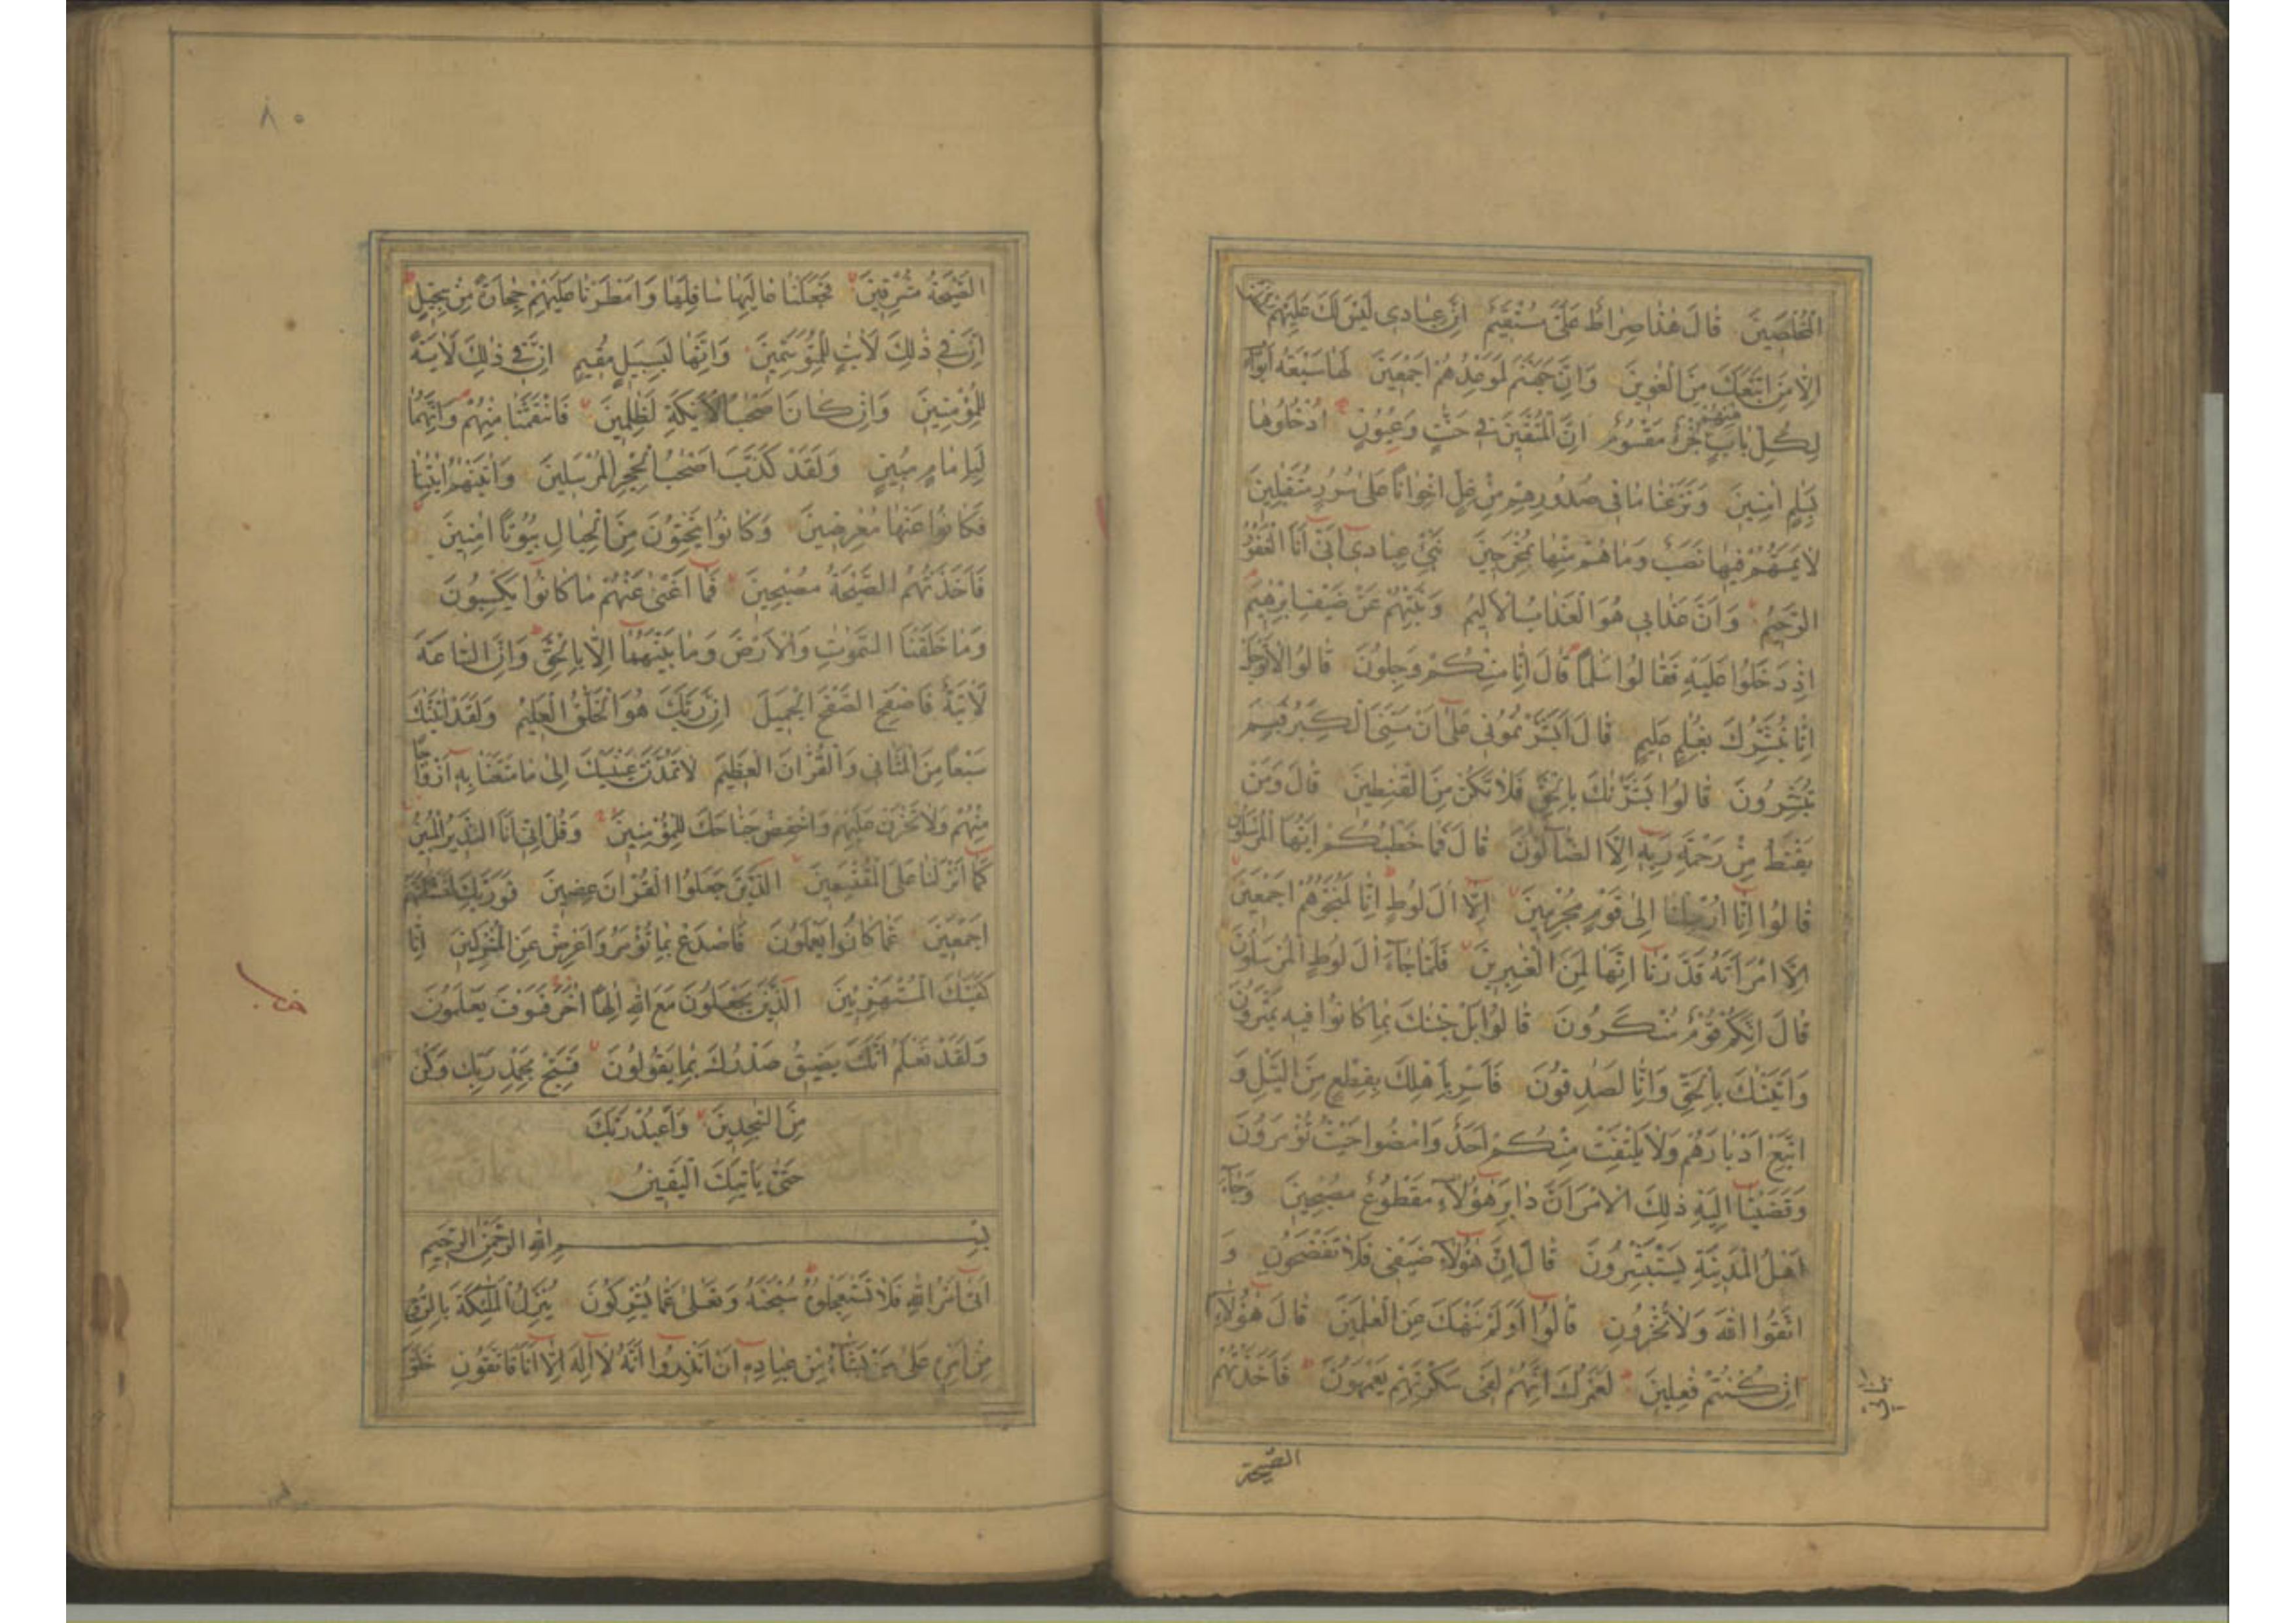 الْمُخْلَصِينَ قَالَ هٰذَا صِرَاطٌ عَلَيَّ مُسْتَقِيمٌ اِنَّ عِبَادِي لَيْسَ لَكَ عَلَيْهِمْ سُلْطٰنٌ
اِلَّا مَنِ اتَّبَعَكَ مِنَ الْغٰوِينَ وَاِنَّ جَهَنَّمَ لَمَوْعِدُهُمْ اَجْمَعِينَ لَهَا سَبْعَةُ اَبْوَابٍ
لِكُلِّ بَابٍ مِنْهُمْ جُزْءٌ مَقْسُومٌ اِنَّ الْمُتَّقِينَ فِي جَنّٰتٍ وَعُيُونٍ اُدْخُلُوهَا
بِسَلٰمٍ اٰمِنِينَ وَنَزَعْنَا مَا فِي صُدُورِهِمْ مِنْ غِلٍّ اِخْوَانًا عَلٰى سُرُرٍ مُتَقٰبِلِينَ
لَا يَمَسُّهُمْ فِيهَا نَصَبٌ وَمَا هُمْ مِنْهَا بِمُخْرَجِينَ نَبِّئْ عِبَادِي اَنِّي اَنَا الْغَفُورُ
الرَّحِيمُ وَاَنَّ عَذَابِي هُوَ الْعَذَابُ الْاَلِيمُ وَنَبِّئْهُمْ عَنْ ضَيْفِ اِبْرٰهِيمَ
اِذْ دَخَلُوا عَلَيْهِ فَقَالُوا سَلٰمًا قَالَ اِنَّا مِنْكُمْ وَجِلُونَ قَالُوا لَا تَوْجَلْ
اِنَّا نُبَشِّرُكَ بِغُلٰمٍ عَلِيمٍ قَالَ اَبَشَّرْتُمُونِي عَلٰى اَنْ مَسَّنِيَ الْكِبَرُ فَبِمَ
تُبَشِّرُونَ قَالُوا بَشَّرْنٰكَ بِالْحَقِّ فَلَا تَكُنْ مِنَ الْقٰنِطِينَ قَالَ وَمَنْ
يَقْنَطُ مِنْ رَحْمَةِ رَبِّهِ اِلَّا الضَّالُّونَ قَالَ فَمَا خَطْبُكُمْ اَيُّهَا الْمُرْسَلُونَ
قَالُوا اِنَّا اُرْسِلْنَا اِلٰى قَوْمٍ مُجْرِمِينَ اِلَّا اٰلَ لُوطٍ اِنَّا لَمُنَجُّوهُمْ اَجْمَعِينَ
اِلَّا امْرَاَتَهُ قَدَّرْنَا اِنَّهَا لَمِنَ الْغٰبِرِينَ فَلَمَّا جَاءَ اٰلَ لُوطٍ الْمُرْسَلُونَ
قَالَ اِنَّكُمْ قَوْمٌ مُنْكَرُونَ قَالُوا بَلْ جِئْنٰكَ بِمَا كَانُوا فِيهِ يَمْتَرُونَ
وَاَتَيْنٰكَ بِالْحَقِّ وَاِنَّا لَصٰدِقُونَ فَاَسْرِ بِاَهْلِكَ بِقِطْعٍ مِنَ اللَّيْلِ وَ
اتَّبِعْ اَدْبَارَهُمْ وَلَا يَلْتَفِتْ مِنْكُمْ اَحَدٌ وَامْضُوا حَيْثُ تُؤْمَرُونَ
وَقَضَيْنَا اِلَيْهِ ذٰلِكَ الْاَمْرَ اَنَّ دَابِرَ هٰؤُلَاءِ مَقْطُوعٌ مُصْبِحِينَ وَجَاءَ
اَهْلُ الْمَدِينَةِ يَسْتَبْشِرُونَ قَالَ اِنَّ هٰؤُلَاءِ ضَيْفِي فَلَا تَفْضَحُونِ وَ
اتَّقُوا اللّٰهَ وَلَا تُخْزُونِ قَالُوا اَوَلَمْ نَنْهَكَ عَنِ الْعٰلَمِينَ قَالَ هٰؤُلَاءِ بَنَاتِي
اِنْ كُنْتُمْ فٰعِلِينَ لَعَمْرُكَ اِنَّهُمْ لَفِي سَكْرَتِهِمْ يَعْمَهُونَ فَاَخَذَتْهُمُ
الصَّيْحَةُ
٨٠
الصَّيْحَةُ مُشْرِقِينَ فَجَعَلْنَا عَالِيَهَا سَافِلَهَا وَاَمْطَرْنَا عَلَيْهِمْ حِجَارَةً مِنْ سِجِّيلٍ
اِنَّ فِي ذٰلِكَ لَاٰيٰتٍ لِلْمُتَوَسِّمِينَ وَاِنَّهَا لَبِسَبِيلٍ مُقِيمٍ اِنَّ فِي ذٰلِكَ لَاٰيَةً
لِلْمُؤْمِنِينَ وَاِنْ كَانَ اَصْحٰبُ الْاَيْكَةِ لَظٰلِمِينَ فَانْتَقَمْنَا مِنْهُمْ وَاِنَّهُمَا
لَبِاِمَامٍ مُبِينٍ وَلَقَدْ كَذَّبَ اَصْحٰبُ الْحِجْرِ الْمُرْسَلِينَ وَاٰتَيْنٰهُمْ اٰيٰتِنَا
فَكَانُوا عَنْهَا مُعْرِضِينَ وَكَانُوا يَنْحِتُونَ مِنَ الْجِبَالِ بُيُوتًا اٰمِنِينَ
فَاَخَذَتْهُمُ الصَّيْحَةُ مُصْبِحِينَ فَمَا اَغْنٰى عَنْهُمْ مَا كَانُوا يَكْسِبُونَ
وَمَا خَلَقْنَا السَّمٰوٰتِ وَالْاَرْضَ وَمَا بَيْنَهُمَا اِلَّا بِالْحَقِّ وَاِنَّ السَّاعَةَ
لَاٰتِيَةٌ فَاصْفَحِ الصَّفْحَ الْجَمِيلَ اِنَّ رَبَّكَ هُوَ الْخَلّٰقُ الْعَلِيمُ وَلَقَدْ اٰتَيْنٰكَ
سَبْعًا مِنَ الْمَثَانِي وَالْقُرْاٰنَ الْعَظِيمَ لَا تَمُدَّنَّ عَيْنَيْكَ اِلٰى مَا مَتَّعْنَا بِهِ اَزْوَاجًا
مِنْهُمْ وَلَا تَحْزَنْ عَلَيْهِمْ وَاخْفِضْ جَنَاحَكَ لِلْمُؤْمِنِينَ وَقُلْ اِنِّي اَنَا النَّذِيرُ الْمُبِينُ
كَمَا اَنْزَلْنَا عَلَى الْمُقْتَسِمِينَ الَّذِينَ جَعَلُوا الْقُرْاٰنَ عِضِينَ فَوَرَبِّكَ لَنَسْئَلَنَّهُمْ
اَجْمَعِينَ عَمَّا كَانُوا يَعْمَلُونَ فَاصْدَعْ بِمَا تُؤْمَرُ وَاَعْرِضْ عَنِ الْمُشْرِكِينَ اِنَّا
كَفَيْنٰكَ الْمُسْتَهْزِئِينَ الَّذِينَ يَجْعَلُونَ مَعَ اللّٰهِ اِلٰهًا اٰخَرَ فَسَوْفَ يَعْلَمُونَ
وَلَقَدْ نَعْلَمُ اَنَّكَ يَضِيقُ صَدْرُكَ بِمَا يَقُولُونَ فَسَبِّحْ بِحَمْدِ رَبِّكَ وَكُنْ
مِنَ السّٰجِدِينَ وَاعْبُدْ رَبَّكَ
حَتّٰى يَاْتِيَكَ الْيَقِينُ
بِسْمِ اللّٰهِ الرَّحْمٰنِ الرَّحِيمِ
اَتٰى اَمْرُ اللّٰهِ فَلَا تَسْتَعْجِلُوهُ سُبْحٰنَهُ وَتَعٰلٰى عَمَّا يُشْرِكُونَ يُنَزِّلُ الْمَلٰئِكَةَ بِالرُّوحِ
مِنْ اَمْرِهِ عَلٰى مَنْ يَشَاءُ مِنْ عِبَادِهِ اَنْ اَنْذِرُوا اَنَّهُ لَا اِلٰهَ اِلَّا اَنَا فَاتَّقُونِ خَلَقَ